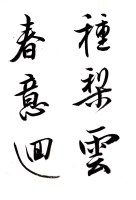 種梨雲
春意迴